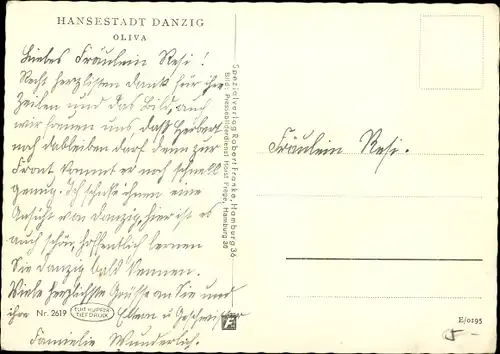 HANSESTADT DANZIG
OLIVA
Liebes Fräulein Resi!
Recht herzlichsten Dank für ihre
Zeilen und das Bild, auch
wir freuen uns, daß Herbert
noch dableiben darf denn zur
Front kommt er noch schnell
genug. Ich schicke ihnen eine
Ansicht von Danzig, hier ist es
auch schön, hoffentlich lernen
Sie Danzig bald kennen.
Viele herzlichste Grüsse an Sie und
ihre Eltern u Geschwister
Familie Wunderlich.
Nr. 2619
ECHT KUPFER
TIEFDRUCK
Spezialverlag Robert Franke, Hamburg 36
Bild: Pressebilderdienst Horst Frege, Hamburg 36
F
Fräulein Resi.
E/0195